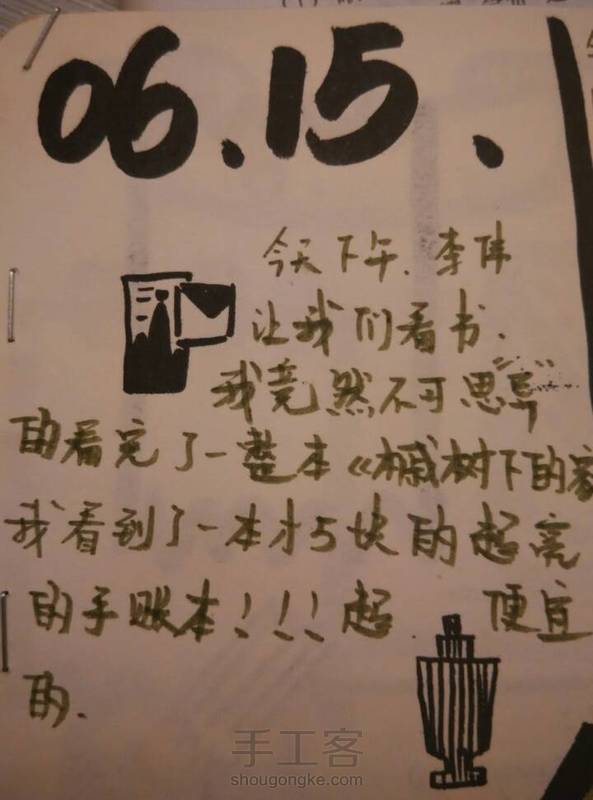 06.15.
今天下午、李伟
让我们看书.
我竟然不可思
的看完了一整本《槭树下的家
我看到了一本才5块的超亮
的手账本!!!超 便宜
的.
手工客
shougongke.com